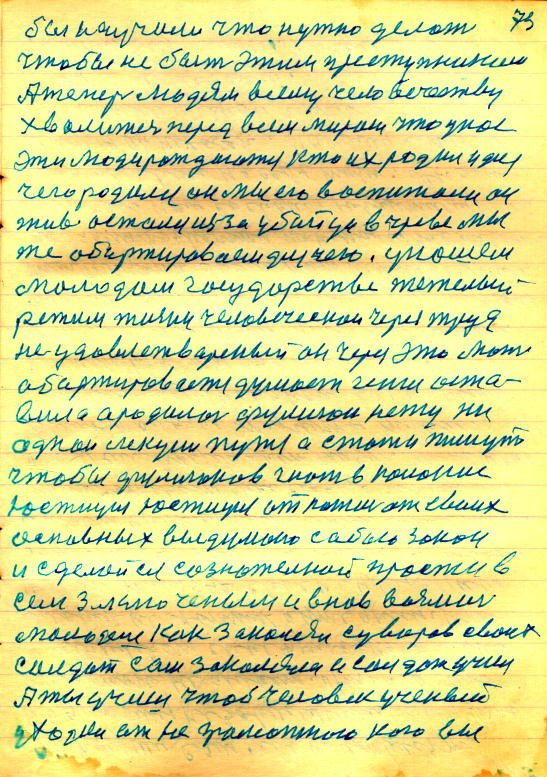 75
был научили что нужно делат
чтобы не быт этим преступником
А тепер людям всему человечеству
хвалимся перед всем миром что у нас
эти люди рождаются кто их родил и для
чего родили он мы его воспитали он
жив остался за убийца в чреве мы
же абартироваем для чего. у нашем
молодом государстве тежелый
режим жизни человеческои через труд
не удовлетвареный он через это мат
абартировает думает оста-
вила а родилас нету ни
однои лекции пут а стати пишут
чтобы гнат в колонии
юстиции юстиция от своих
основных выдумало сабою закон
и сделайся сознателной прости в
сем злаключеным и внов возми
молодеш как закалял суворов своих
салдат сам закалялся и салдат учил
А ты учиш чтоб человек ученый
уходил от не грамотного кого вы